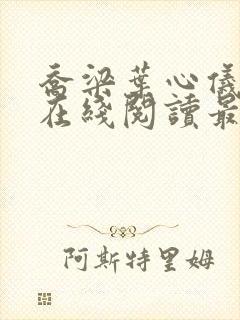 喬梁葉心儀
在綫閱讀最
阿斯特里姆